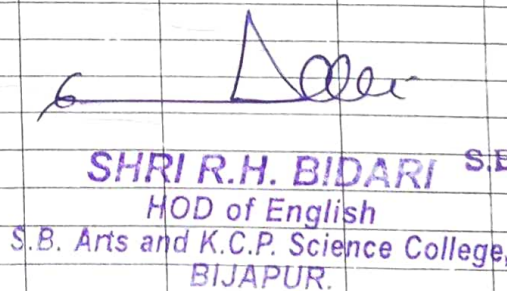 SHRI R.H. BIDARI
HOD of English
S.B. Arts and K.C.P. Science College,
BIJAPUR.